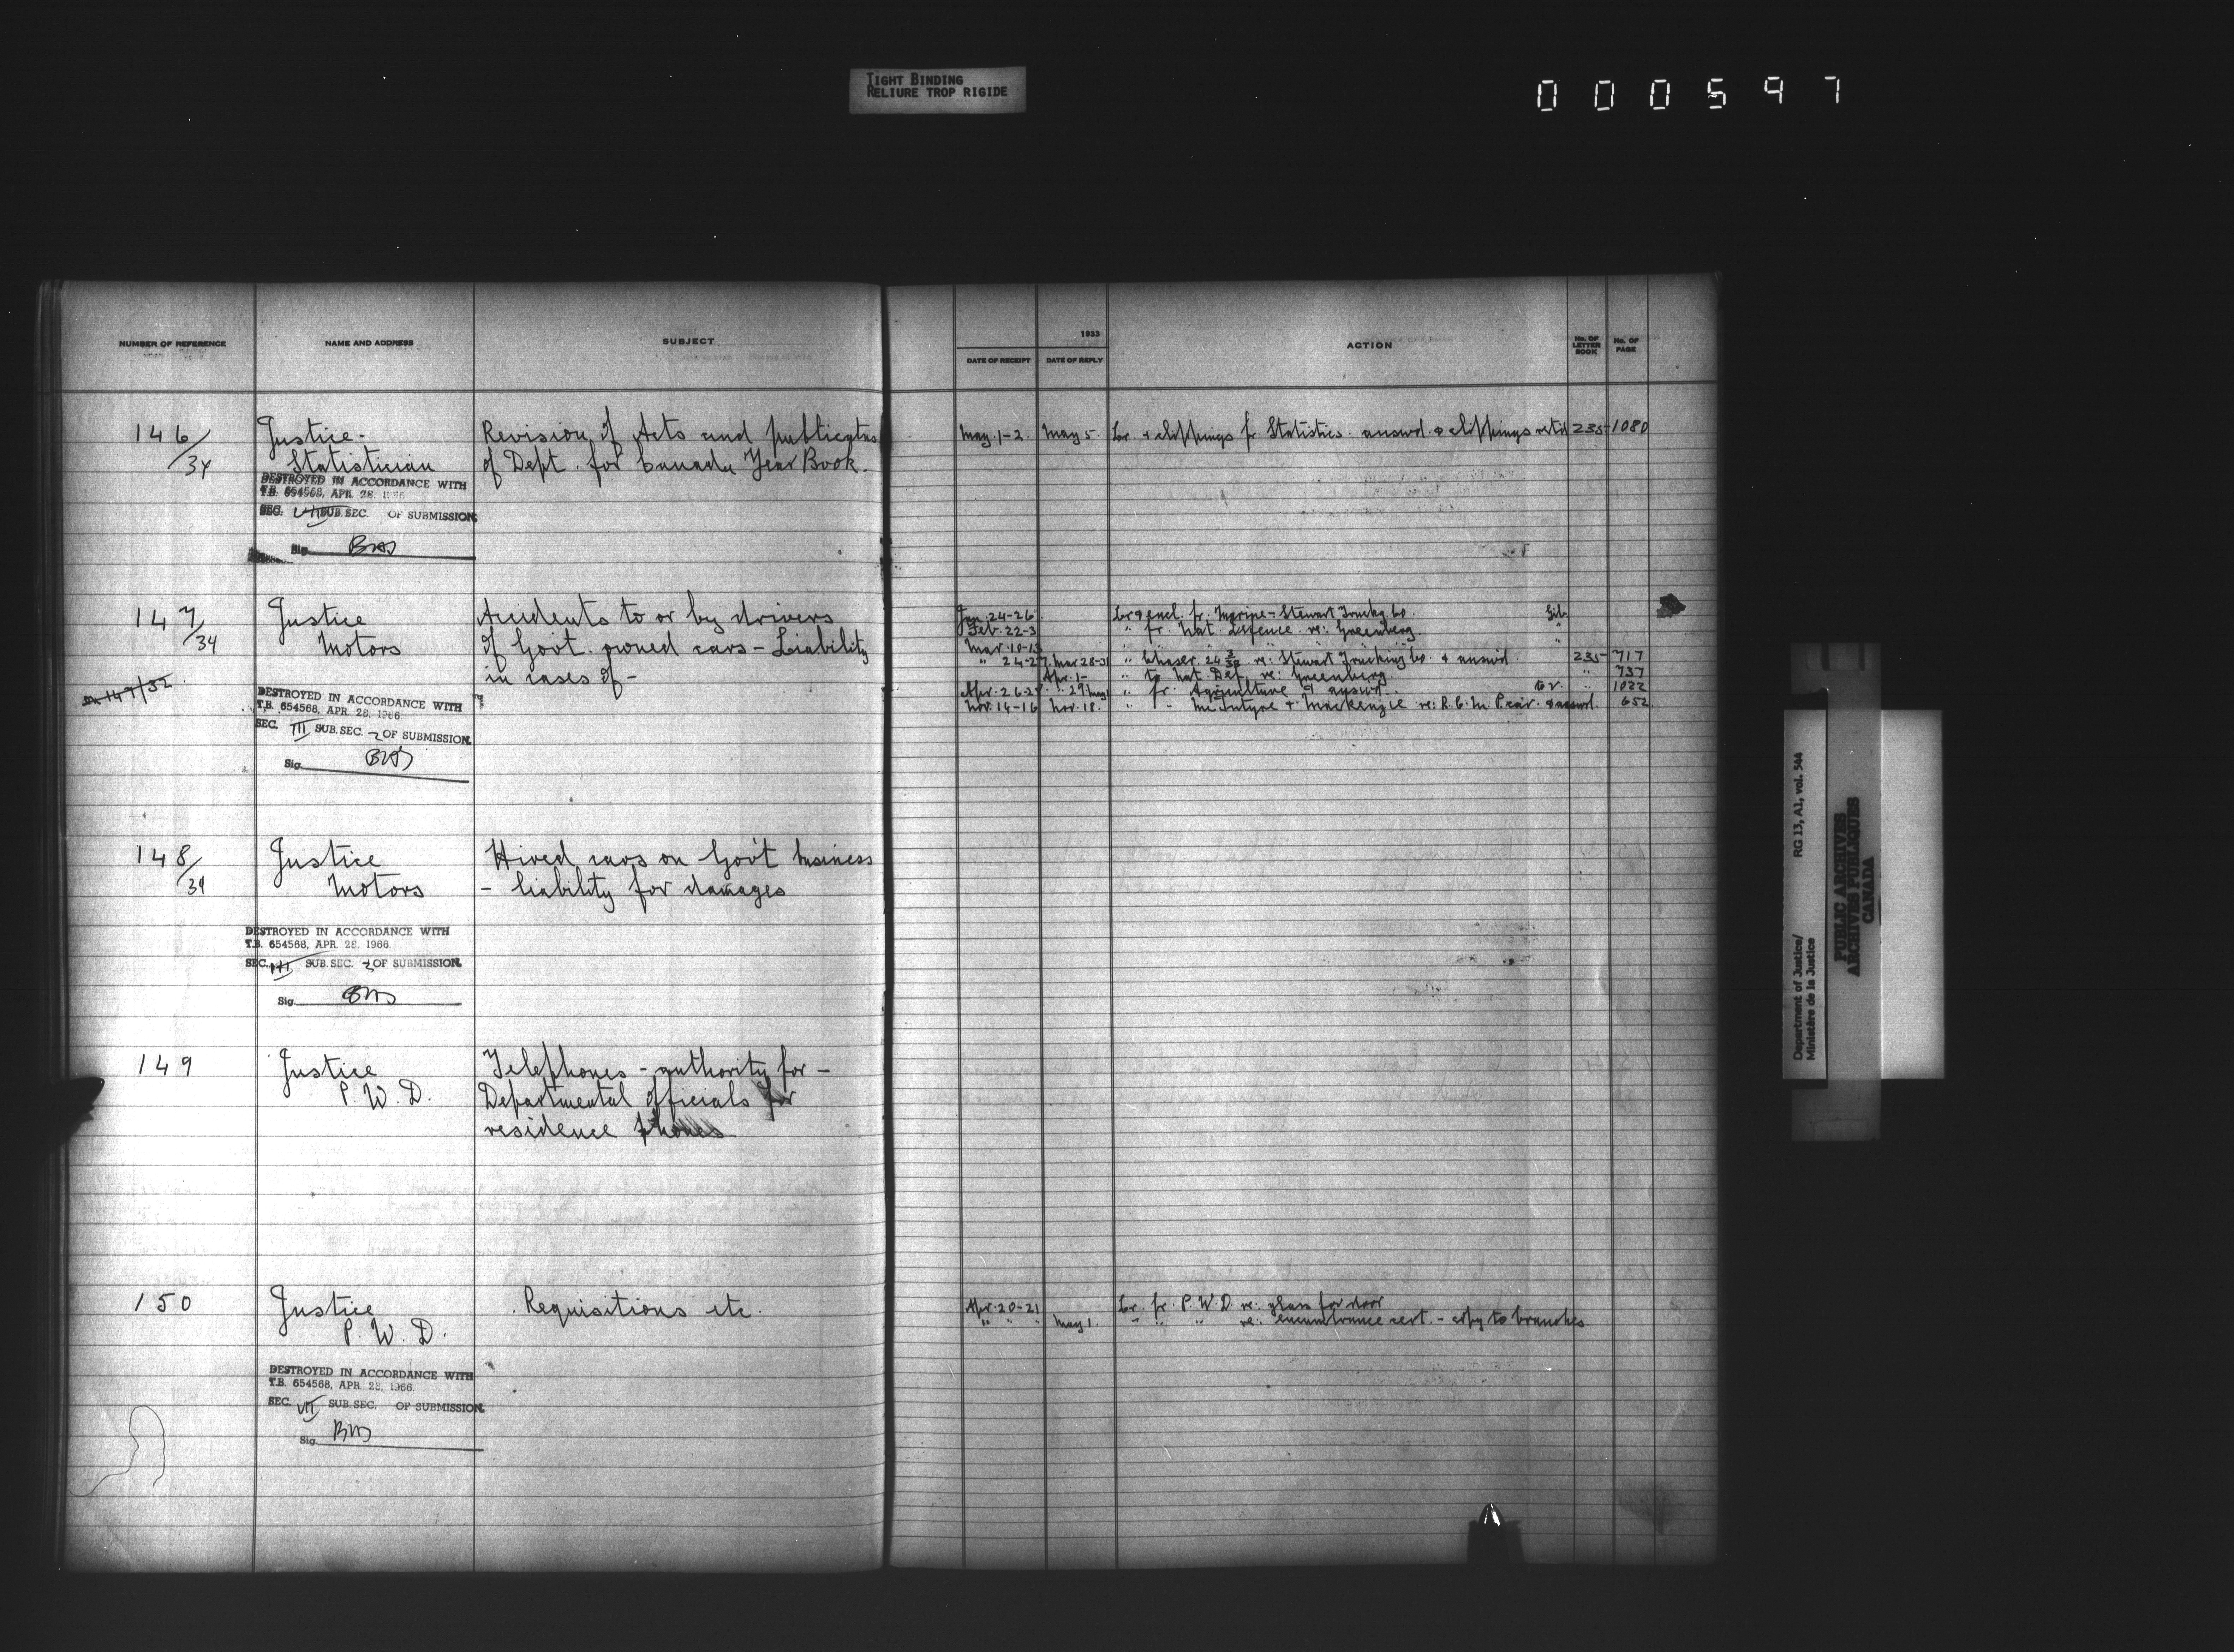 TIGHT BINDING
RELIURE TROP RIGIDE
000597
NUMBER OF REFERENCE
NAME AND ADDRESS
SUBJECT
146/34
Justice-
Statistician
Revision of Acts and publicatns
of Dept. for Canada Year Book.
DESTROYED IN ACCORDANCE WITH
T.B. 654568, APR. 28, 1966
SEC. SUB.SEC. OF SUBMISSION
Sig.
147/34
Justice
Motors
Accidents to or by drivers
of Govt. owned cars - Liability
in cases of -
147/32
DESTROYED IN ACCORDANCE WITH
T.B. 654568, APR. 28, 1966
SEC. III SUB.SEC. 2 OF SUBMISSION.
Sig.
148/34
Justice
Motors
Hired cars on Gov't business
- liability for damages
DESTROYED IN ACCORDANCE WITH
T.B. 654568, APR. 28, 1966.
SEC. III SUB.SEC. 2 OF SUBMISSION.
Sig.
149
Justice
P.W.D.
Telephones - authority for -
Departmental officials for
residence phones
150
Justice
P.W.D.
Requisitions etc.
DESTROYED IN ACCORDANCE WITH
T.B. 654568, APR. 28, 1966.
SEC. VII SUB.SEC. OF SUBMISSION.
Sig.
1933
DATE OF RECEIPT
DATE OF REPLY
ACTION
No. OF LETTER BOOK
No. OF PAGE
May 1-2 May 5. Lr. & clippings fr. Statistics. answd. & clippings retd 235 1080
Jan. 24-26 Lr & encl. fr. Marine - Stewart Truckg Co.
Feb. 22-3 " fr. Nat. Defence re: Greenberg. "
Mar. 10-13 " " " " "
" 24-27 Mar 28-31 " Chaser re: Stewart Trucking Co. & answd. 235 717
Apr. 1- " to Nat. Def. re: Greenberg. " 737
Apr. 26-27 " 29 May 1 " fr. Agriculture & answd. " 1022
Nov. 14-16 Nov. 18. " " McIntyre & Mackenzie re: R.C.M.P. car. & answd. 652
Apr. 20-21 Lr. fr. P.W.D. re: glass for door
" " " May 1. " " " re: encumbrance cert. - copy to branches
Department of Justice/
Ministère de la Justice
RG 13, A1, vol. 544
PUBLIC ARCHIVES
ARCHIVES PUBLIQUES
CANADA